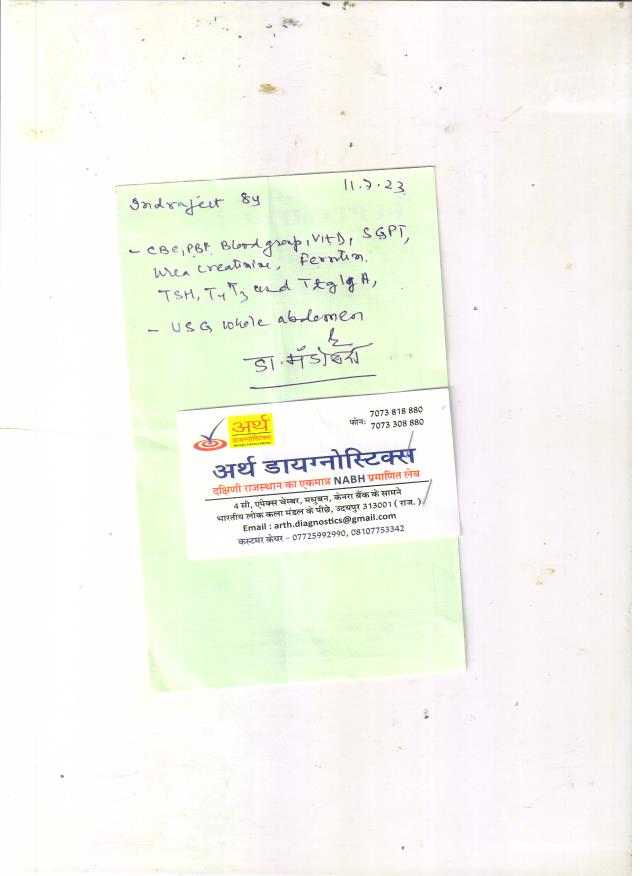 Indrajeet 8y 11.7.23
- CBC, PBF Blood group, Vit D, SGPT,
Urea creatinine, Ferritin.
TSH, T4 T3 and TtgIgA,
- USG whole abdomen
डा.
अर्थ
डायग्नोस्टिक्स
फोन: 7073 818 880
7073 308 880
अर्थ डायग्नोस्टिक्स
दक्षिणी राजस्थान का एकमात्र NABH प्रमाणित लेब
4 सी, एपेक्स चेम्बर, मधुबन, केनरा बैंक के सामने
भारतीय लोक कला मंडल के पीछे, उदयपुर 313001 ( राज. )
Email : arth.diagnostics@gmail.com
कस्टमर केयर - 07725992990, 08107753342